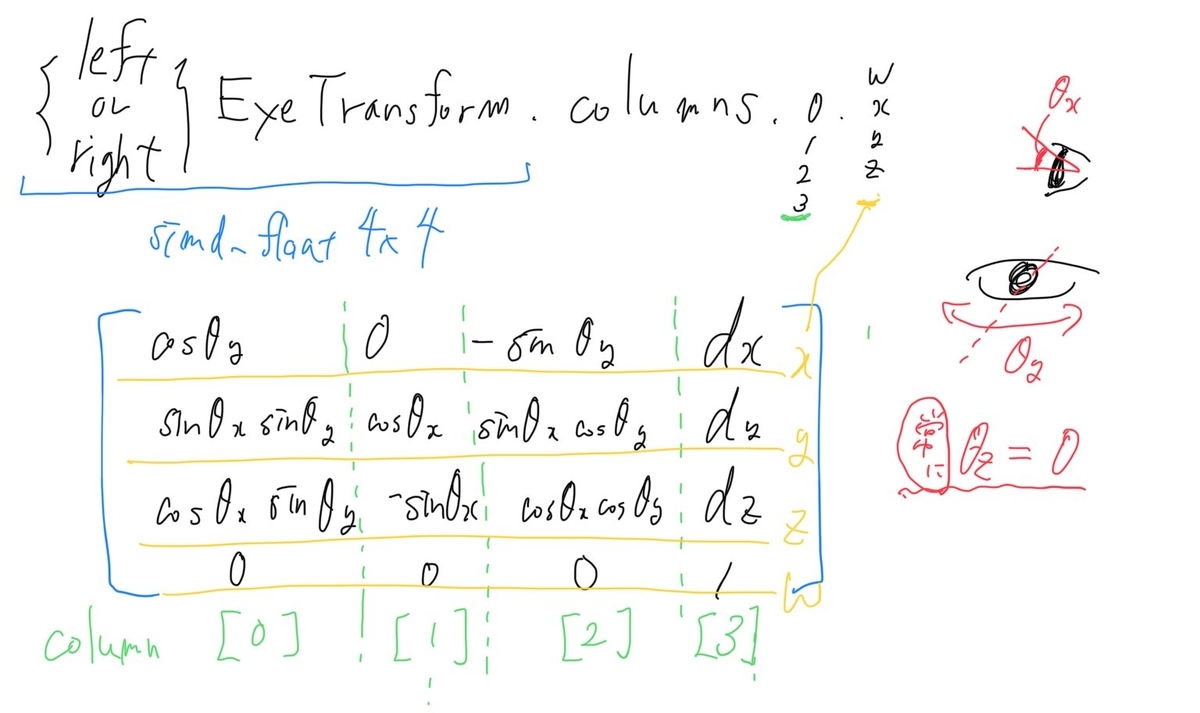 { left or right } EyeTransform . columns . 0 . w
1 x
2 y
3 z
simd_float 4x4
θx
θy
常に θz = 0
cosθy 0 -sinθy dx x
sinθx sinθy cosθx sinθx cosθy dy y
cosθx sinθy -sinθx cosθx cosθy dz z
0 0 0 1 w
column [0] [1] [2] [3]